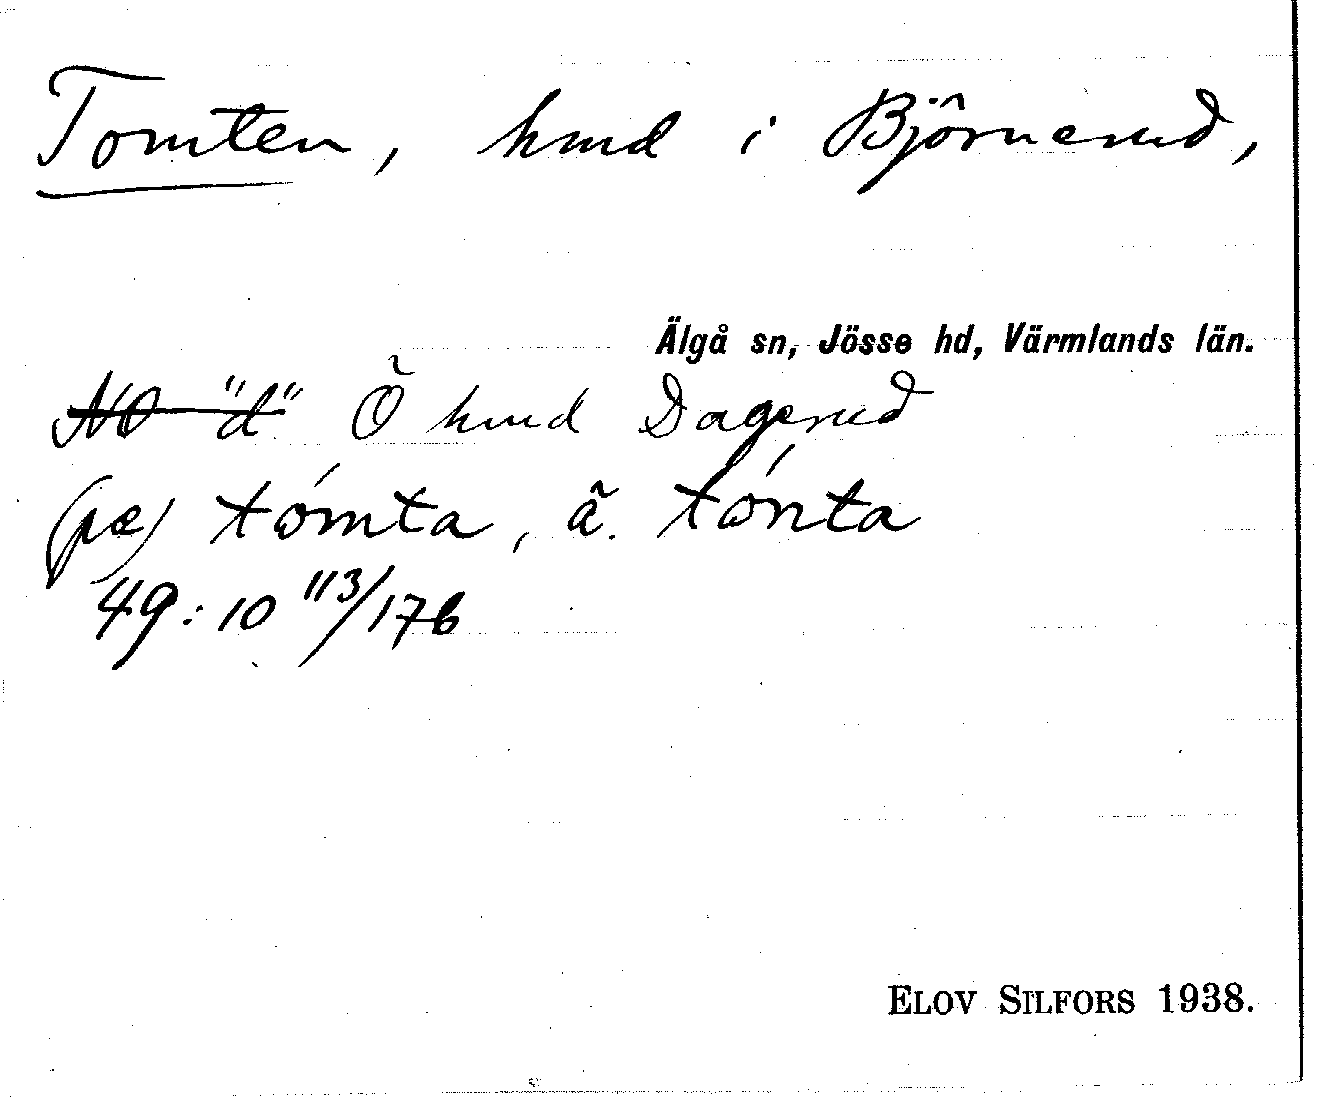 Tomten, hmd i Björnerud,
Älgå sn, Jösse hd, Värmlands län.
NO "d" Ö hmd Dagerud
(pæ) tómta, ä. tónta
49:10 113/176
ELOV SILFORS 1938.